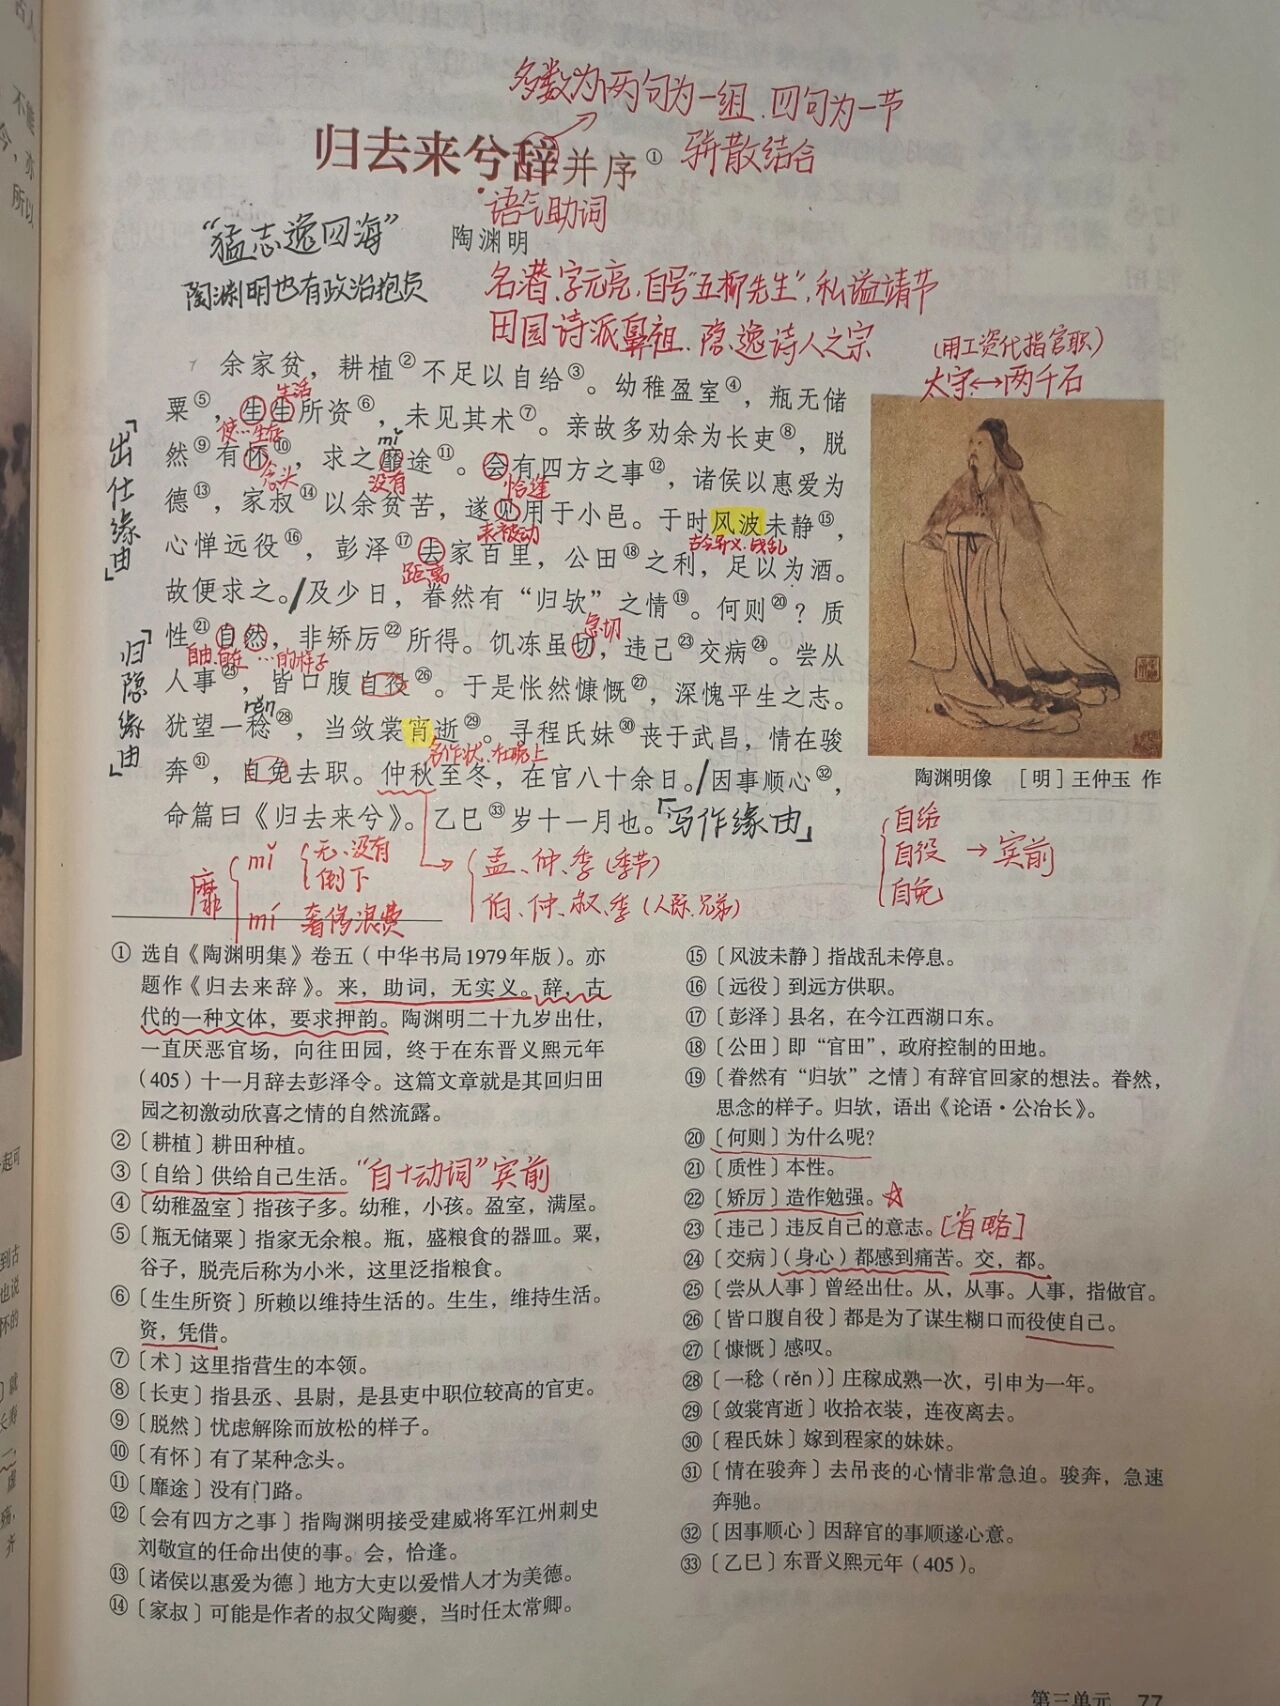 古人
不能
亦
所以
多数为两句为一组、四句为一节
归去来兮辞并序①
骈散结合
语气助词
“猛志逸四海”
陶渊明
陶渊明也有政治抱负
名潜,字元亮,自号“五柳先生”,私谥靖节
田园诗派鼻祖、隐逸诗人之宗
(用工资代指官职)
太守↔两千石
余家贫，耕植②不足以自给③。幼稚盈室④，瓶无储
生活
粟⑤，生生所资⑥，未见其术⑦。亲故多劝余为长吏⑧，脱
使…生存
mǐ
然⑨有怀⑩，求之靡途⑪。会有四方之事⑫，诸侯以惠爱为
念头
没有
恰逢
德⑬，家叔⑭以余贫苦，遂见用于小邑。于时风波未静⑮，
表被动
古今异义、战乱
心惮远役⑯，彭泽⑰去家百里，公田⑱之利，足以为酒。
距离
故便求之。/及少日，眷然有“归欤”之情⑲。何则⑳？质
急切
性㉑自然，非矫厉㉒所得。饥冻虽切，违己㉓交病㉔。尝从
自由自在
…的样子
人事㉕，皆口腹自役㉖。于是怅然慷慨㉗，深愧平生之志。
rěn
犹望一稔㉘，当敛裳宵逝㉙。寻程氏妹㉚丧于武昌，情在骏
名作状、在晚上
奔㉛，自免去职。仲秋至冬，在官八十余日。/因事顺心㉜，
命篇曰《归去来兮》。乙巳㉝岁十一月也。「写作缘由」
「出仕缘由」
「归隐缘由」
陶渊明像 ［明］王仲玉 作
靡
mǐ
无、没有
倒下
mí 奢侈浪费
孟、仲、季(季节)
伯、仲、叔、季(人际、兄弟)
自给
自役 → 宾前
自免
① 选自《陶渊明集》卷五（中华书局1979年版）。亦
题作《归去来辞》。来，助词，无实义。辞，古
代的一种文体，要求押韵。陶渊明二十九岁出仕，
一直厌恶官场，向往田园，终于在东晋义熙元年
（405）十一月辞去彭泽令。这篇文章就是其回归田
园之初激动欣喜之情的自然流露。
②〔耕植〕耕田种植。
③〔自给〕供给自己生活。“自+动词”宾前
④〔幼稚盈室〕指孩子多。幼稚，小孩。盈室，满屋。
⑤〔瓶无储粟〕指家无余粮。瓶，盛粮食的器皿。粟，
谷子，脱壳后称为小米，这里泛指粮食。
⑥〔生生所资〕所赖以维持生活的。生生，维持生活。
资，凭借。
⑦〔术〕这里指营生的本领。
⑧〔长吏〕指县丞、县尉，是县吏中职位较高的官吏。
⑨〔脱然〕忧虑解除而放松的样子。
⑩〔有怀〕有了某种念头。
⑪〔靡途〕没有门路。
⑫〔会有四方之事〕指陶渊明接受建威将军江州刺史
刘敬宣的任命出使的事。会，恰逢。
⑬〔诸侯以惠爱为德〕地方大吏以爱惜人才为美德。
⑭〔家叔〕可能是作者的叔父陶夔，当时任太常卿。
⑮〔风波未静〕指战乱未停息。
⑯〔远役〕到远方供职。
⑰〔彭泽〕县名，在今江西湖口东。
⑱〔公田〕即“官田”，政府控制的田地。
⑲〔眷然有“归欤”之情〕有辞官回家的想法。眷然，
思念的样子。归欤，语出《论语·公冶长》。
⑳〔何则〕为什么呢？
㉑〔质性〕本性。
㉒〔矫厉〕造作勉强。☆
㉓〔违己〕违反自己的意志。[省略]
㉔〔交病〕（身心）都感到痛苦。交，都。
㉕〔尝从人事〕曾经出仕。从，从事。人事，指做官。
㉖〔皆口腹自役〕都是为了谋生糊口而役使自己。
㉗〔慷慨〕感叹。
㉘〔一稔（rěn）〕庄稼成熟一次，引申为一年。
㉙〔敛裳宵逝〕收拾衣装，连夜离去。
㉚〔程氏妹〕嫁到程家的妹妹。
㉛〔情在骏奔〕去吊丧的心情非常急迫。骏奔，急速
奔驰。
㉜〔因事顺心〕因辞官的事顺遂心意。
㉝〔乙巳〕东晋义熙元年（405）。
第三单元 77